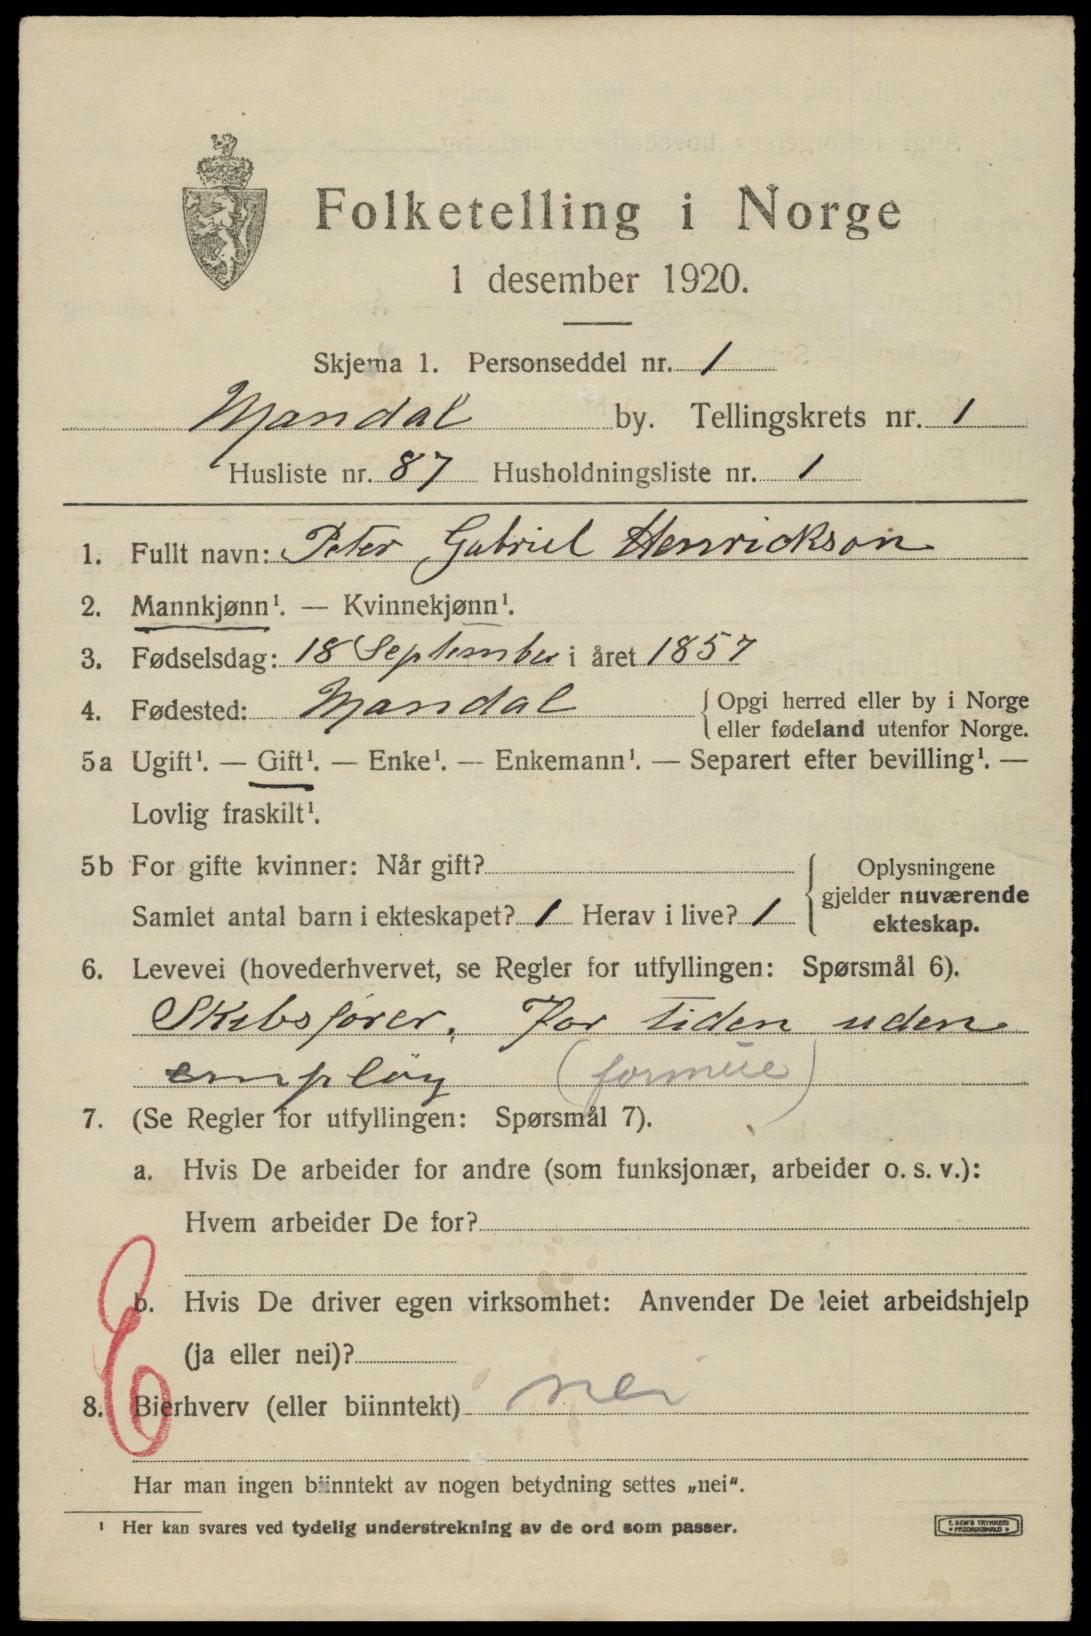 Folketelling i Norge
1 desember 1920.
Skjema 1. Personseddel nr. 1
Mandal by. Tellingskrets nr. 1
Husliste nr. 87 Husholdningsliste nr. 1
1. Fullt navn: Peter Gabriel Henrickson
2. Mannkjønn¹. — Kvinnekjønn¹.
3. Fødselsdag: 18 September i året 1857
4. Fødested: Mandal { Opgi herred eller by i Norge
eller fødeland utenfor Norge.
5a Ugift¹. — Gift¹. — Enke¹. — Enkemann¹. — Separert efter bevilling¹. —
Lovlig fraskilt¹.
5b For gifte kvinner: Når gift? { Oplysningene
gjelder nuværende
Samlet antal barn i ekteskapet? 1 Herav i live? 1 ekteskap.
6. Levevei (hovederhvervet, se Regler for utfyllingen: Spørsmål 6).
Skibsfører. For tiden uden
employ (formue)
7. (Se Regler for utfyllingen: Spørsmål 7).
a. Hvis De arbeider for andre (som funksjonær, arbeider o. s. v.):
Hvem arbeider De for?
b. Hvis De driver egen virksomhet: Anvender De leiet arbeidshjelp
(ja eller nei)?
8. Bierhverv (eller biinntekt) nei
Har man ingen biinntekt av nogen betydning settes „nei“.
¹ Her kan svares ved tydelig understrekning av de ord som passer.
E. SEM'S TRYKKERI
FREDRIKSHALD